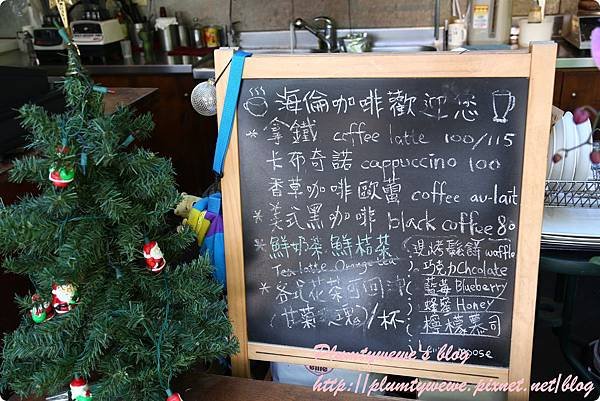 海倫咖啡歡迎您
*拿鐵 coffee latte 100/115
卡布奇諾 cappuccino 100
香草咖啡歐蕾 coffee au-lait
*美式黑咖啡 black coffee 80
*鮮奶茶 鮮桔茶
Tea latte Orange tea
現烤鬆餅 waffle
巧克力 Chcolate
藍莓 Blueberry
蜂蜜 Honey
檸檬慕司
Lemon
*各式花茶可回沖
/杯
Plumtywewe's blog
http://plumtywewe.pixnet.net/blog